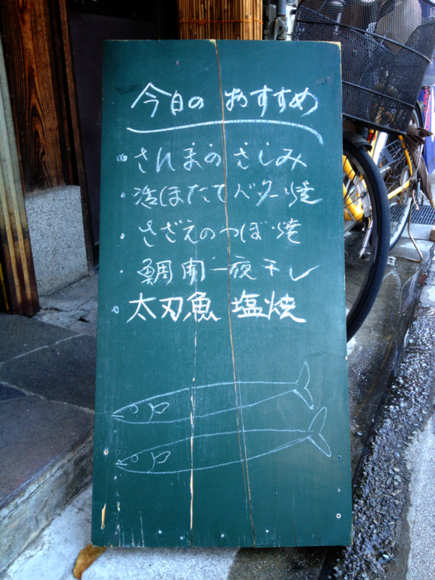 今日の おすすめ
・さんまのさしみ
・活ほたてバター焼
・さざえのつぼ焼
・鯛開一夜干し
・太刀魚 塩焼